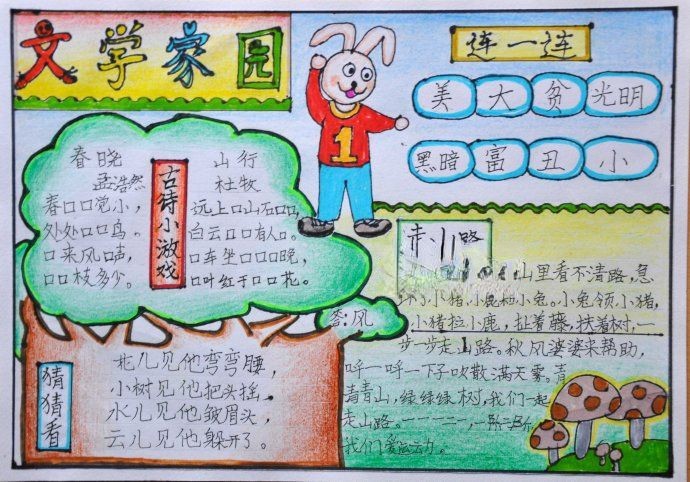 文学家园
连一连
美 大 贫 光明
黑暗 富 丑 小
古诗小游戏
春晓
孟浩然
春□□觉小，
处处□□鸟。
□来风□声，
□□枝多少。
山行
杜牧
远上□山石□□，
白云□□有人□。
□车坐□□□晚，
□叶红于□□花。
答:风
猜猜看
花儿见他弯弯腰，
小树见他把头摇，
水儿见他皱眉头，
云儿见他躲开了。
路
山里看不清路，急
小猪，小鹿和小兔。小兔领小猪，
小猪拉小鹿，扯着藤，扶着树，一
步一步走山路。秋风婆婆来帮助，
呼一呼一下子吹散满天雾。青
青青山，绿绿绿树，我们一起
走山路。一一一二一，
我们爱运动。